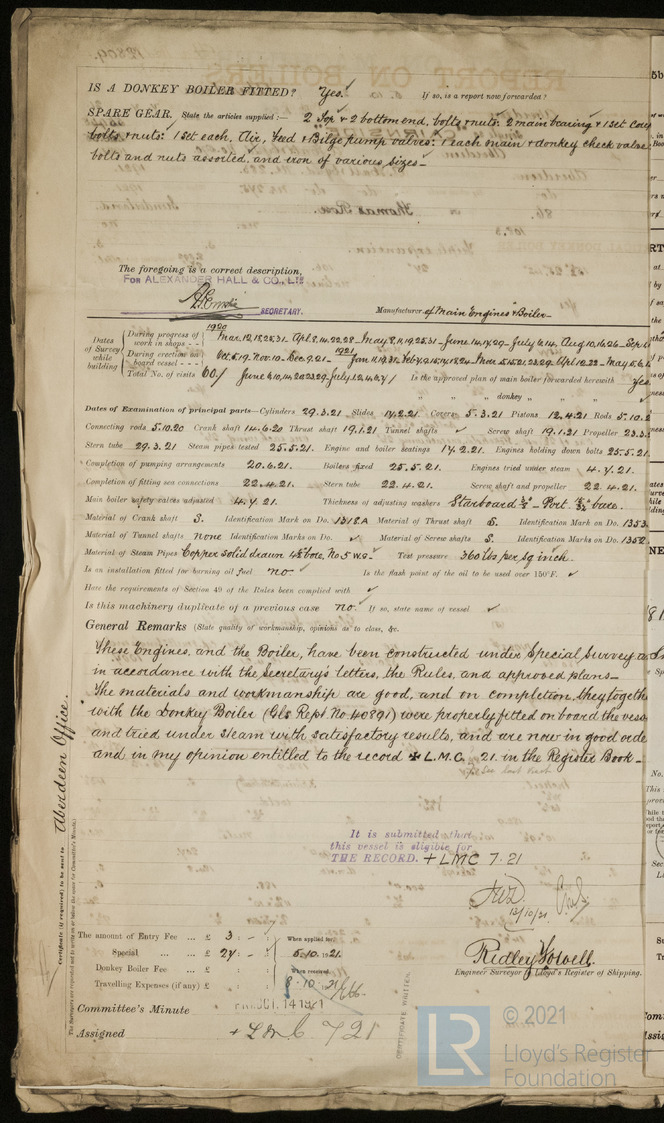 IS A DONKEY BOILER FITTED? Yes. If so, is a report now forwarded?
SPARE GEAR. State the articles supplied:— 2 Top & 2 bottom end, bolts & nuts: 2 main bearing & 1 Set Coup
bolts & nuts: 1 Set each, Air, Feed & Bilge pump valves: 1 each main & donkey check valve
bolts and nuts assorted, and iron of various sizes—
The foregoing is a correct description,
FOR ALEXANDER HALL & CO., LTD
SECRETARY. Manufacturer of Main Engines & Boiler—
Dates of Survey while building
During progress of work in shops - - 1920 Mar. 12.18.25.31 Apl. 8.14.22.28 May 8.11.19.25.31 June 14.17.29 July 6.14. Aug 10.16.26 Sep
During erection on board vessel - - - Oct. 5.19. Nov. 10. Dec. 9.21 1921
Total No. of visits 60 Is the approved plan of main boiler forwarded herewith Yes
" " " donkey " " "
Dates of Examination of principal parts—Cylinders 29.3.21 Slides 14.2.21 Covers 5.3.21 Pistons 12.4.21 Rods 5.10.2
Connecting rods 5.10.20 Crank shaft 14.6.20 Thrust shaft 19.1.21 Tunnel shafts ✓ Screw shaft 19.1.21 Propeller 23.3.
Stern tube 29.3.21 Steam pipes tested 25.5.21. Engine and boiler seatings 14.2.21. Engines holding down bolts 25.5.21.
Completion of pumping arrangements 20.6.21. Boilers fixed 25.5.21. Engines tried under steam 4.7.21.
Completion of fitting sea connections 22.4.21. Stern tube 22.4.21. Screw shaft and propeller 22.4.21.
Main boiler safety valves adjusted 4.7.21. Thickness of adjusting washers Starboard Port bare.
Material of Crank shaft S. Identification Mark on Do. 1318A Material of Thrust shaft S. Identification Mark on Do. 1353
Material of Tunnel shafts none Identification Marks on Do. ✓ Material of Screw shafts S. Identification Marks on Do. 1352
Material of Steam Pipes Copper solid drawn 4½ bore. No 5 W.G. Test pressure 360 lbs per sq inch.
Is an installation fitted for burning oil fuel no. Is the flash point of the oil to be used over 150°F. ✓
Have the requirements of Section 49 of the Rules been complied with ✓
Is this machinery duplicate of a previous case no. If so, state name of vessel ✓
General Remarks (State quality of workmanship, opinions as to class, &c.
These Engines, and the Boiler, have been constructed under Special Survey a
in accordance with the Secretary's letters, the Rules, and approved plans—
The materials and workmanship are good, and on completion, they togeth
with the Donkey Boiler (Gls Rept. No 40891) were properly fitted on board the vess
and tried under steam with satisfactory results, and are now in good orde
and in my opinion entitled to the record ✠ L.M.C. 21. in the Register Book—
It is submitted that
this vessel is eligible for
THE RECORD. + LMC 7.21
12/10/21
Certificate (if required) to be sent to Aberdeen Office.
The amount of Entry Fee ... £ 3 : - :
Special ... ... £ 24 : - :
Donkey Boiler Fee ... £ : :
Travelling Expenses (if any) £ : :
When applied for, 5.10.1921.
When received,
8.10.21
Ridley Howell.
Engineer Surveyor to Lloyd's Register of Shipping.
Committee's Minute FRI. OCT. 14 1921
Assigned + L M C 7 21
CERTIFICATE WRITTEN
LR © 2021
Lloyd's Register
Foundation